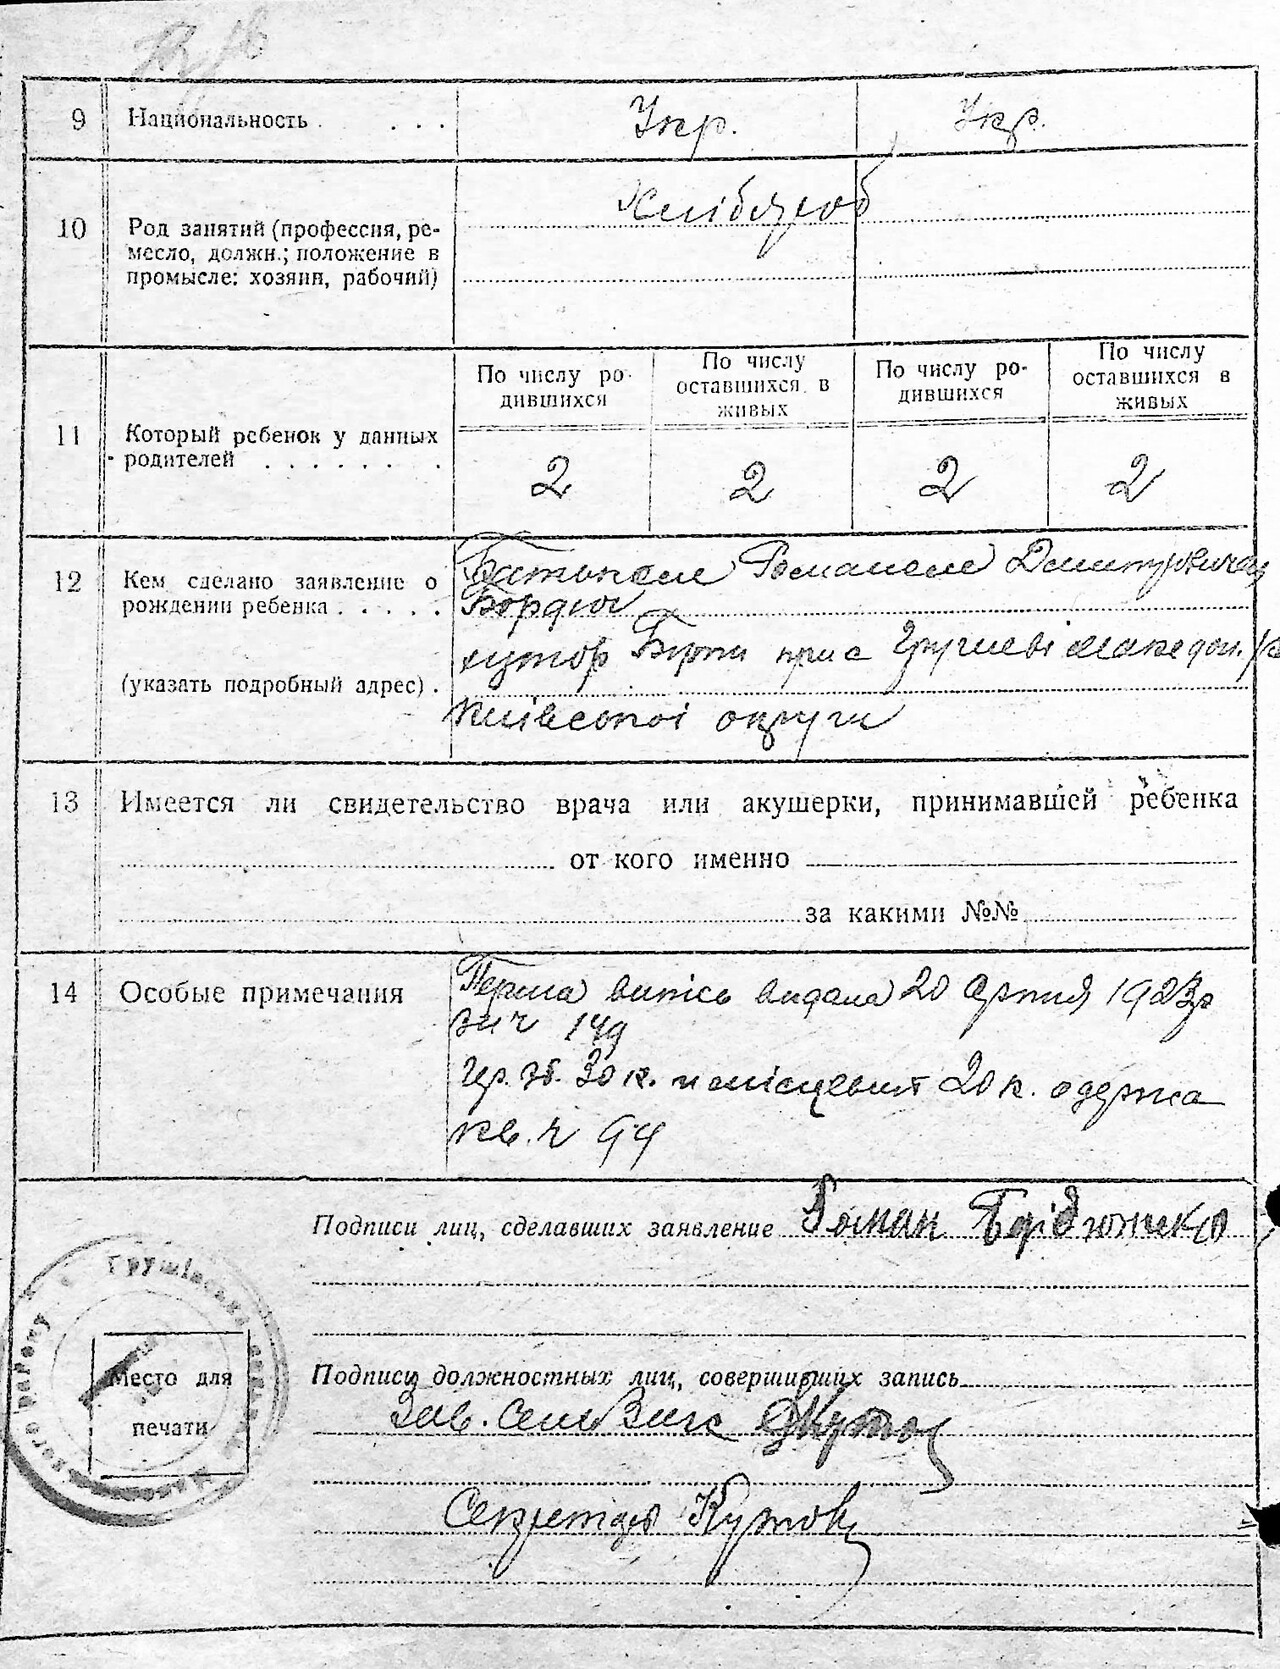 9 Национальность . . . . Укр. Укр.
10 Род занятий (профессия, ре-
месло, должн.; положение в
промысле: хозяин, рабочий)
Хлібороб
11 Который ребенок у данных
родителей . . . . . . . .
По числу ро-
дившихся
По числу
оставшихся в
живых
По числу ро-
дившихся
По числу
оставшихся в
живых
2 2 2 2
12 Кем сделано заявление о
рождении ребенка . . . . .
(указать подробный адрес) .
Батьком Романом Дмитровичем
хутор Бурти при с Грушеві Македон.
Київської округи
13 Имеется ли свидетельство врача или акушерки, принимавшей ребенка
от кого именно
за какими №№
14 Особые примечания
Перша випись видана 20 серпня 1923р
за ч 149
Гер. зб. 30 к. и місцевий 20 к. одержа
кв. ч 94
Подписи лиц, сделавших заявление Роман
Место для
печати
Подписи должностных лиц, совершивших запись
Зав.
Секретарь